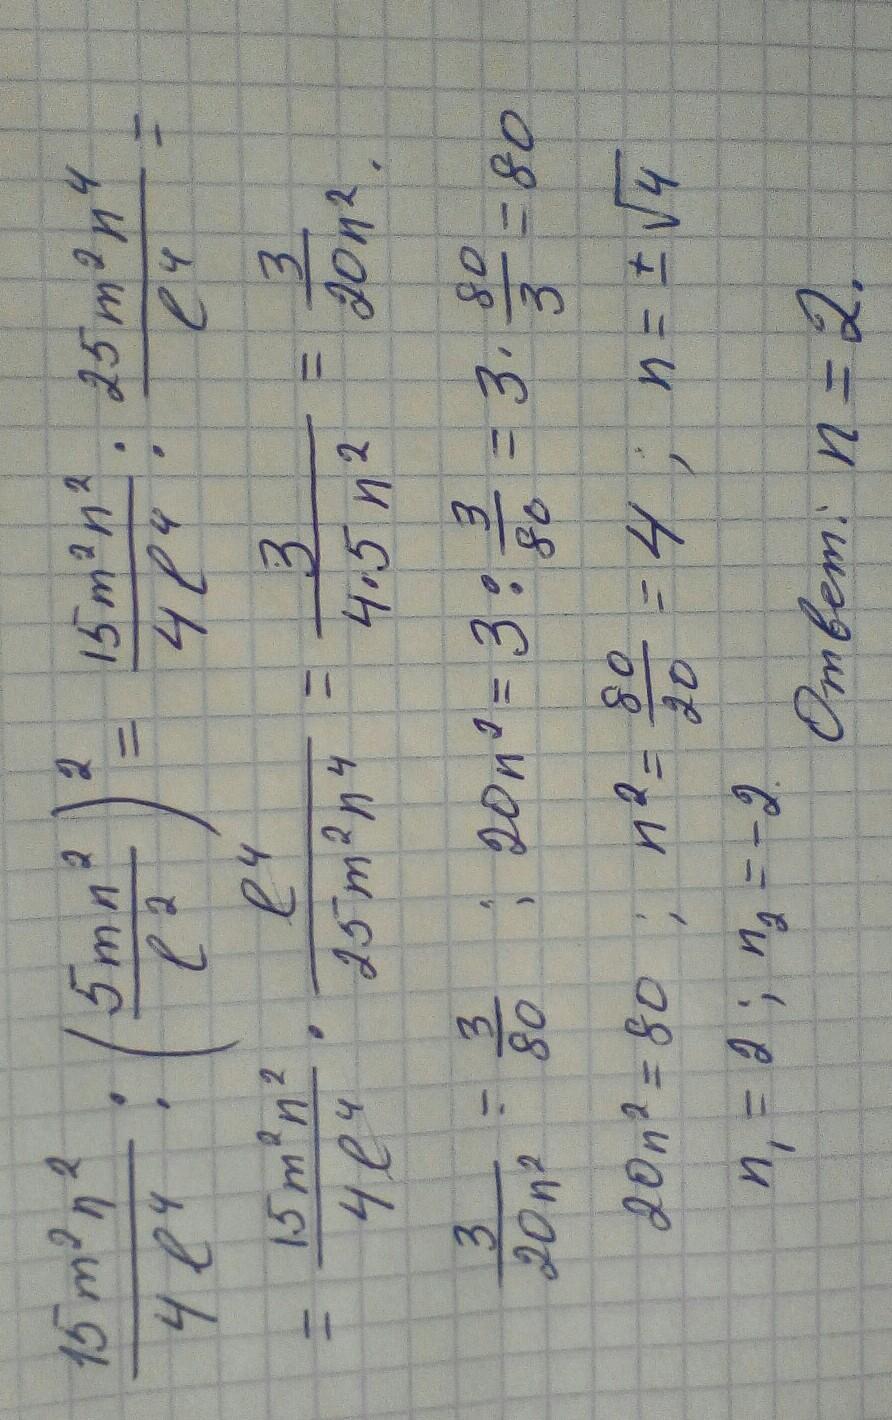 15m²n²/4ℓ⁴ : (5mn²/ℓ²)² = 15m²n²/4ℓ⁴ : 25m²n⁴/ℓ⁴ =
= 15m²n²/4ℓ⁴ · ℓ⁴/25m²n⁴ = 3/4·5n² = 3/20n².
3/20n² = 3/80 ; 20n² = 3 : 3/80 = 3 · 80/3 = 80
20n² = 80 ; n² = 80/20 = 4 ; n = ±√4
n₁ = 2 ; n₂ = -2
Ответ: n = 2.